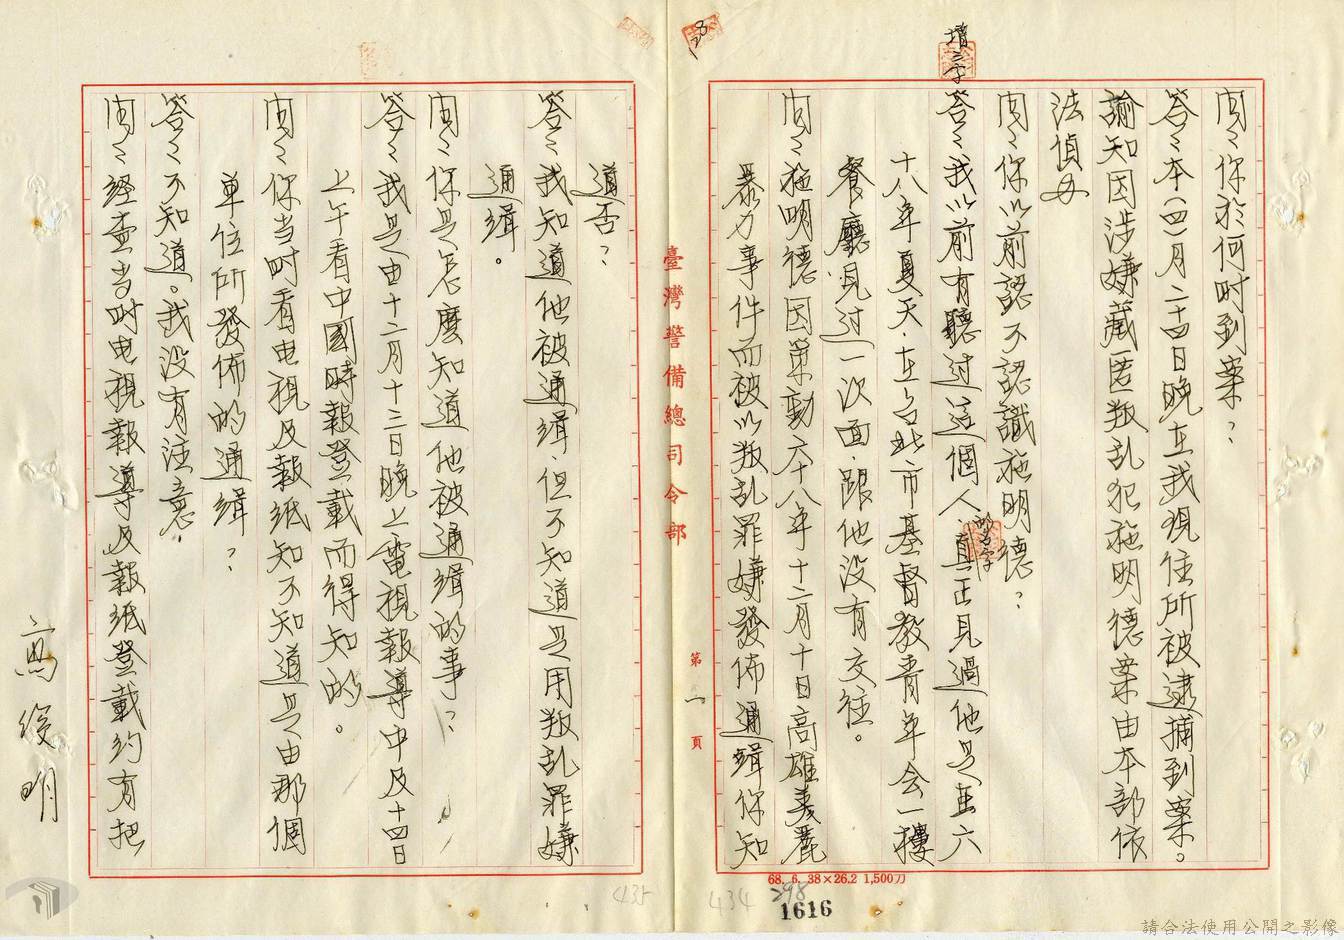 問:你於何时到案?
答:本(四)月二十四日晚在我現住所被逮捕到案。
諭知因涉嫌藏匿叛乱犯施明德案由本部依
法偵办
問:你以前認不認識施明德?
增三字
答:我以前有聽过這個人真正見過他是在六
十八年夏天.在台北市基督教青年会一樓
餐廳見过一次面.跟他没有交往。
問:施明德因策動六十八年十二月十日高雄美麗
暴力事件而被以叛乱罪嫌發佈通緝你知
臺灣警備總司令部
第一頁
道否?
答:我知道他被通缉.但不知道是用叛乱罪嫌
通缉。
問:你是怎麼知道他被通缉的事?
答:我是由十二月十三日晚上電視報導中及十四日
上午看中國時報登載而得知的。
問:你当时看电視及報紙知不知道是由那個
单位所發佈的通緝?
答:不知道。我没有注意.
問:经查当时电視報導及報紙登載約有把
高俊明
68. 6. 38×26.2 1,500刀
434
298
1616
435
請合法使用公開之影像